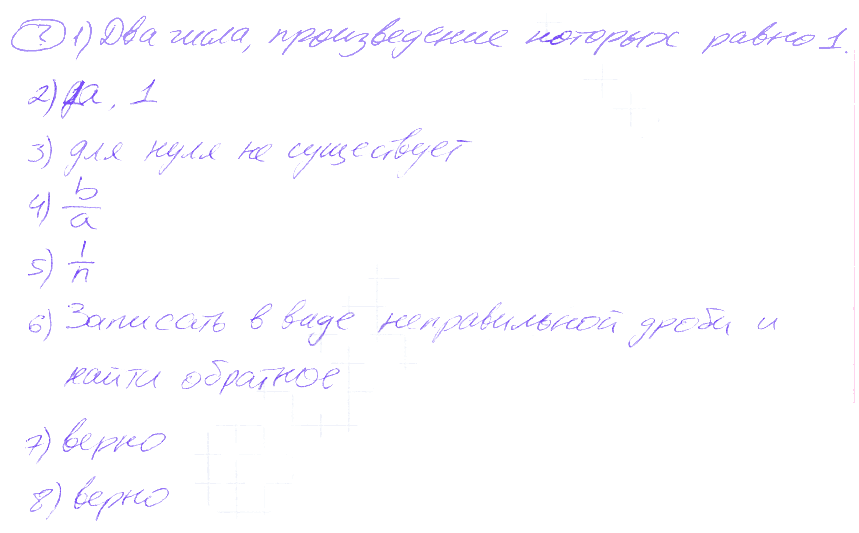 ? 1) Два числа, произведение которых равно 1.
2) да, 1
3) для нуля не существует
4) b/a
5) 1/n
6) Записать в виде неправильной дроби и
найти обратное
7) верно
8) верно